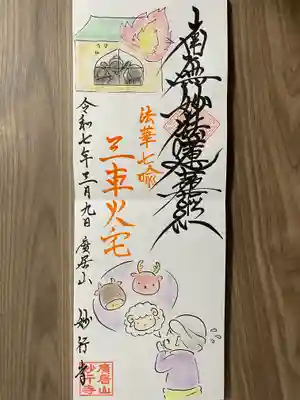 南無妙法蓮華経
法華七喩
三車火宅
令和七年三月九日
廣居山
妙行寺
廣居山
妙行寺